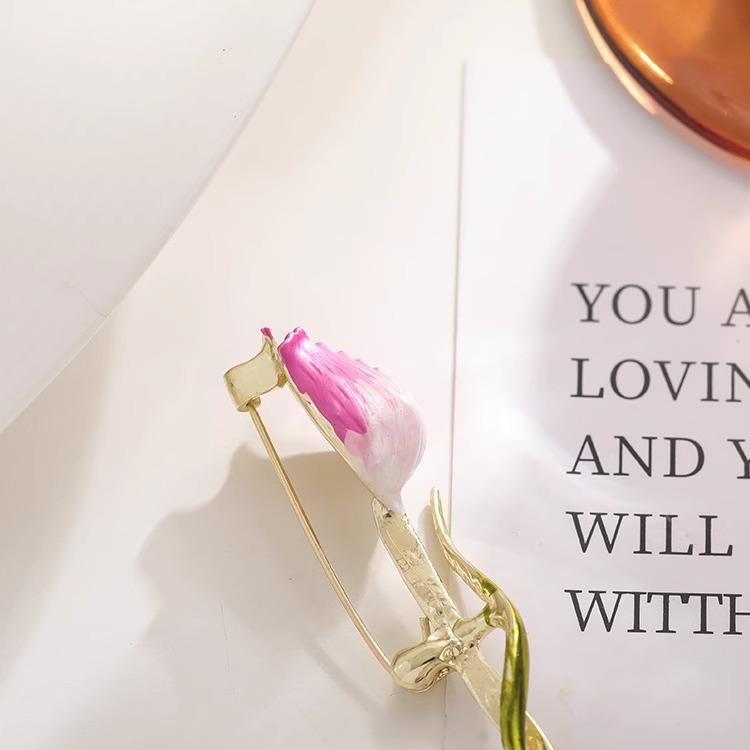 YOU A
LOVIN
AND Y
WILL
WITTH